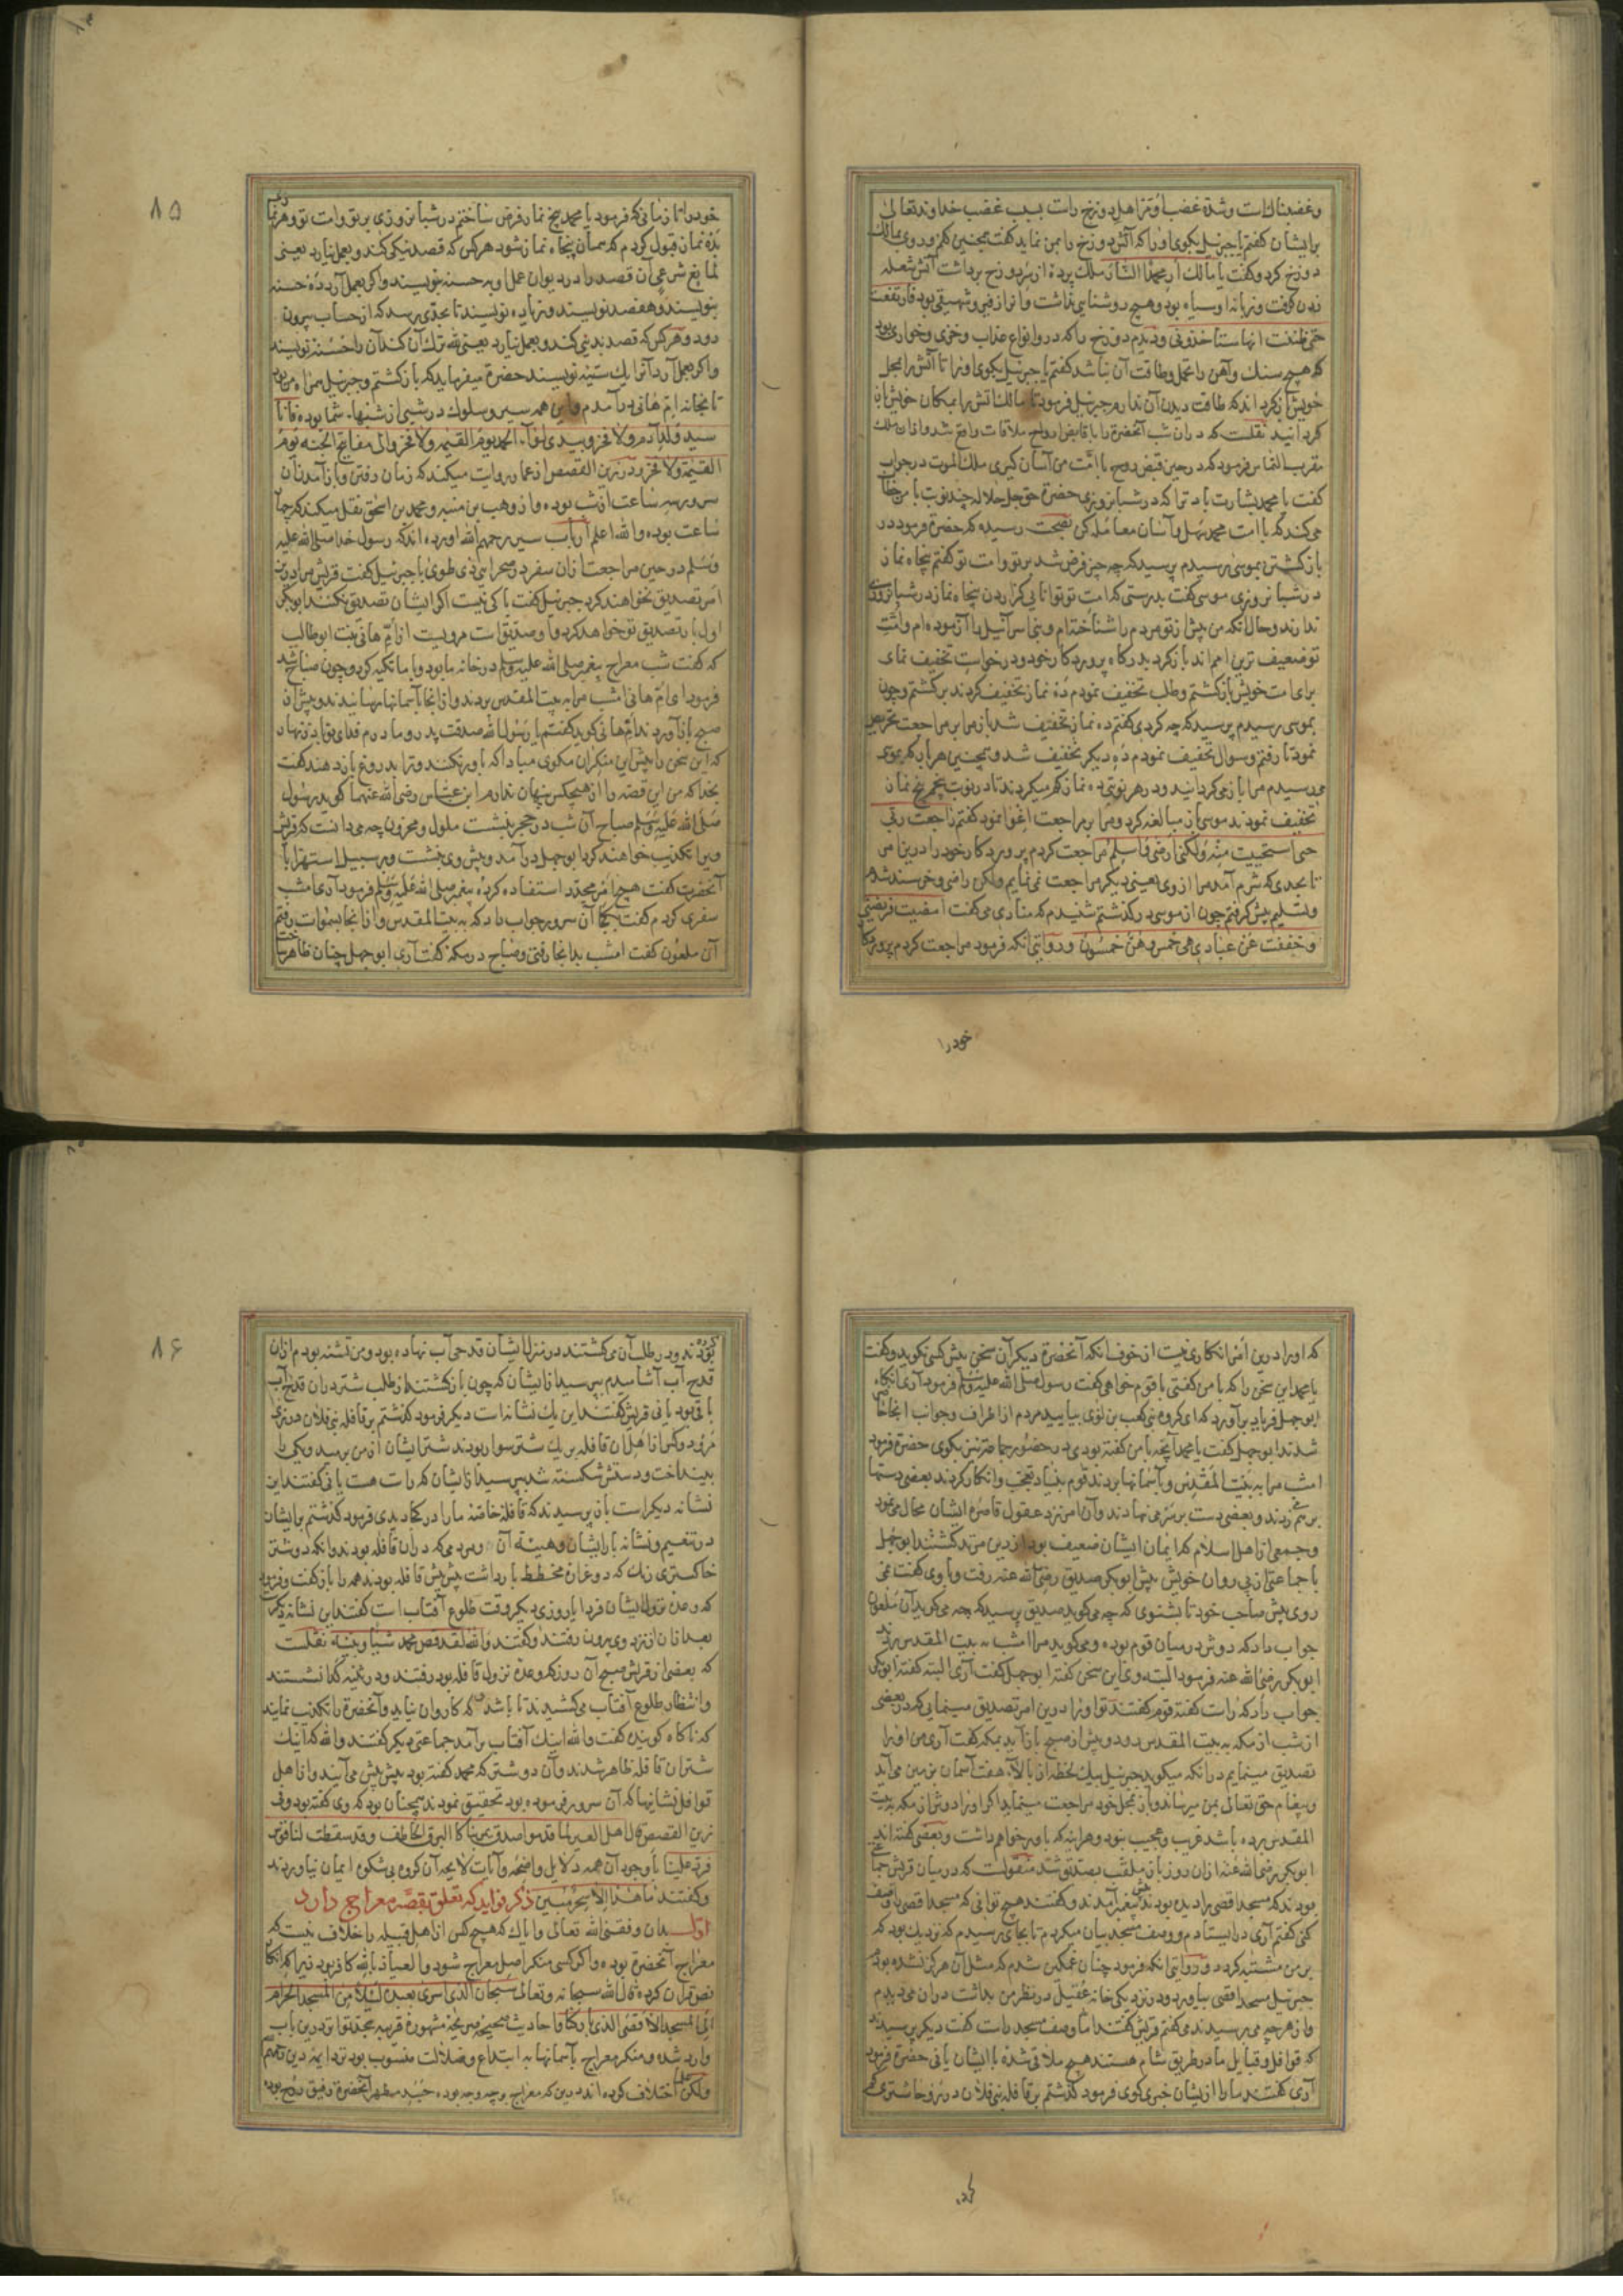 وغضبناك است وشدة غضب او بر اهل دوزخ است بسبب غضب خداوند تعالى
برايشان كفتم يا جبرئيل بكوى او را كه آتش دوزخ را بمن نمايد كفت همچنين كنم ورو وى بمالك
دوزخ كرد وكفت يا مالك ار محمدا النار ملك پرده از سر دوزخ برداشت آتش شعله
زدن كرفت وزبانه او سياه بود وهيچ روشنايى نداشت واز او زفير وشهيقى بود فارتفعت
حتى ظننت انها ستاخذونى وديدم دوزخ را كه درو انواع عذاب وخزى وخوارى بود
كه هيچ سنك وآهن را تحمل وطاقت آن نباشد كفتم يا جبرئيل بكوى او را تا آتش را بمحل
خويش باز كرداند كه طاقت ديدن آن ندارم جبرئيل فرمود تا مالك آتش را بمكان خويش باز
كردانيد نقلست كه دران شب آنحضرة را با قابض ارواح ملاقات واقع شد وازان ملك
مقرب التماس فرمود كه در حين قبض روح با امت من آسان كيرى ملك الموت در جواب
كفت يا محمد بشارت باد ترا كه در شبانروزى حضرة حق جل جلاله چند نوبت با من خطاب
مى كند كه با امت محمد سهل وآسان معامله كن بصحت رسيده كه حضرة فرمود در
باز كشتن بموسى رسيدم پرسيد كه چه چيز فرض شد بر تو وامت تو كفتم پنجاه نماز
در شبانروزى موسى كفت بدرستى كه امت تو توانايى كزاردن پنجاه نماز در شبانروزى
ندارند وحال آنكه من پيش از تو مردم را شناخته ام وبنى اسرائيل را آزموده ام وامت
تو ضعيف ترين امم اند باز كرد بدركاه پروردكار خود ودرخواست تخفيف نماى
براى امت خويش باز كشتم وطلب تخفيف نمودم ده نماز تخفيف كردند بركشتم وچون
بموسى رسيدم پرسيد كه چه كردى كفتم ده نماز تخفيف شد باز مرا بر مراجعت تحريض
نمود تا رفتم وسوال تخفيف نمودم ده ديكر تخفيف شد وهمچنين هربار كه بموسى
مى رسيدم مرا باز مى كردانيد ودر هر نوبتى ده نماز كم ميكردند تا در نوبت پنجم پنج نماز
تخفيف نمودند موسى باز مبالغه كرد ومرا بر مراجعت اغوا نمود كفتم راجعت ربى
حتى استحييت منه ولكنى ارضى واسلم مراجعت كردم پروردكار خود را درين امر
تا بحدى كه شرم آمد مرا از وى يعنى ديكر مراجعت نمى نمايم ولكن راضى وخرسند شدم
وتسليم پيش كرفتم چون از موسى در كذشتم شنيدم كه منادى مى كفت امضيت فريضتى
وخففت عن عبادى هى خمس وهن خمسون ورواتى آنكه فرمود مراجعت كردم پروردكار
خود را
٨٥
خود را تا زمانى كه فرمود يا محمد پنج نماز فرض ساختم در شبانروزى بر تو وامت تو وهر نماز
بده نماز قبول كردم كه همان پنجاه نماز شود هركس كه قصد نيكى كند وبعمل نيارد يعنى
لمانع شرعى آن قصد را در ديوان عمل او يه حسنه نويسند واكر بعمل آرد ده حسنه
بنويسند وهفصد نويسند وزياده نويسند تا بحدى برسد كه از حساب بيرون
رود وهركس كه قصد بدى كند وبعمل نيارد يعنى لله ترك آن كند آن را حسنه نويسند
واكر بعمل آرد آنرا يك سيئه نويسند حضرة ميفرمايد كه باز كشتم وجبرئيل همراه من بود
تا بخانه ام هانى در آمدم واين همه سير وسلوك در شبى از شبهاى شما بوده فانا
سيد ولد آدم ولا فخر وبيدى لواء الحمد يوم القيمه ولا فخر والى مفاتح الجنه يوم
القيمة ولا فخر ودر زين القصص از عمار روايت ميكند كه زمان رفتن وباز آمدن آن
سرور سه ساعت از شب بوده واز وهب بن منبه ومحمد بن اسحق نقل ميكند كه چهار
ساعت بوده والله اعلم ارباب سير رحمهم الله آورده اند كه رسول خدا صلى الله عليه
وسلم در حين مراجعت ازان سفر در صحراى ذى طوى با جبرئيل كفت قريش مرا درين
امر تصديق نخواهند كرد جبرئيل كفت باكى نيست اكر ايشان تصديق نكنند ابو بكر
اول بار تصديق تو خواهد كرد واو صديق است مرويست از ام هانى بنت ابو طالب
كه كفت شب معراج پيغمبر صلى الله عليه وسلم در خانه ما بود وبا ما تكيه كرد وچون صباح شد
فرمود اى ام هانى امشب مرا به بيت المقدس بردند واز انجا بآسمانها رسانيدند وپيش از
صبح باز آوردند ام هانى كويد كفتم يا رسول الله صدقت پدر ومادرم فداى تو باد زنهار
كه اين سخن را پيش اين منكران مكوى مبادا كه باور نكنند وترا بدروغ باز دهند كفت
بخدا كه من اين قصه را از هيچكس پنهان ندارم ابن عباس رضى الله عنهما كويد رسول
صلى الله عليه وسلم صباح آن شب در حجر بنشست ملول ومحزون چه مى دانست كه قريش
ويرا تكذيب خواهند كرد ابو جهل در آمد وپيش وى بنشست وبر سبيل استهزا با
آنحضرت كفت هيچ امر مجدد استفاده كرده پيغمبر صلى الله عليه وسلم فرمود آرى امشب
سفرى كردم كفت بكجا آن سرور جواب داد كه به بيت المقدس واز انجا بسموات رفتم
آن ملعون كفت امشب بدانجا رفتى وصباح در مكه كفت آرى ابو جهل چنان ظاهر ساخت
كه او را درين امر انكارى نيست از خوف آنكه آنحضرة ديكر آن سخن پيش كسى نكويد وكفت
يا محمد اين سخن را كه با من كفتى با قوم خواهى كفت رسول صلى الله عليه وسلم فرمود آرى آنكاه
ابو جهل فرياد بر آورد كه اى كروه بنى كعب بن لؤى بياييد مردم از اطراف وجوانب انجا حاضر
شدند ابو جهل كفت يا محمد آنچه با من كفته بودى در حضور جماعة نيز بكوى حضرة فرمود
امشب مرا به بيت المقدس وبآسمانها بردند قوم بنياد تعجب وانكار كردند بعضى دستها
بر هم زدند وبعضى دست بر سر مى نهادند وآن امر نزد عقول قاصره ايشان محال مى نمود
وجمعى از اهل اسلام كه ايمان ايشان ضعيف بود از دين مرتد كشتند ابو جهل
با جماعتى از پى روان خويش پيش ابو بكر صديق رضى الله عنه رفت وبا وى كفت مى
روى پيش صاحب خود تا بشنوى كه چه مى كويد صديق پرسيد كه چه مى كويد آن ملعون
جواب داد كه دوش در ميان قوم بوده ومى كويد مرا امشب به بيت المقدس بردند
ابو بكر رضى الله عنه فرمود البته وى اين سخن كفته ابو جهل كفت آرى البته كفته ابو بكر
جواب داد كه راست كفته قوم كفتند تو او را درين امر تصديق مينمايى كه در بعضى
از شب از مكه به بيت المقدس رود وپيش از صبح باز آيد بمكه كفت آرى من او را
تصديق مينمايم در آنكه ميكويد جبرئيل بيك لحظه از بالاى هفت آسمان بزمين مى آيد
وپيغام حق تعالى بمن ميرساند وباز بمحل خود مراجعت مينمايد اكر او را دوش از مكه به بيت
المقدس برده باشد غريب وعجيب نبود وهر اينه كه باور خواهم داشت وبعضى كفته اند
ابو بكر رضى الله عنه ازان روز باز ملقب بصديق شد منقولست كه در ميان قريش جمعى
بودند كه مسجد اقصى را ديده بودند پيش پيغمبر آمدند وكفتند هيچ توانى كه مسجد اقصى را وصف
كنى كفتم آرى در ايستادم ووصف مسجد بيان ميكردم تا بجاى رسيدم كه نزديك بود كه
بر من مشتبه كردد وروايتى آنكه فرمود چنان غمكين شدم كه مثل آن هركز نشده بودم
جبرئيل مسجد اقصى بياورد ودر نزديكى خانه عقيل در نظر من بداشت دران مى ديدم
واز هرچه مى پرسيدند مى كفتم قريش كفتند اما وصف مسجد راست كفت ديكر پرسيدند
كه قوافل وقبايل ما در طريق شام هستند هيچ ملاقى شده با ايشان يا نى حضرة فرمود
آرى كفتند ما را از ايشان خبرى كوى فرمود كذشتم بر قافله بنى فلان در روحا شترى كم
كرده
٨٦
كرده بودند ودر طلب آن مى كشتند در منزل ايشان قدحى آب نهاده بود ومن تشنه بودم ازان
قدح آب آشاميدم بپرسيد از ايشان كه چون باز كشتند از طلب شتر دران قدح آب
باقى بود يا نى قريش كفتند اين يك نشانه است ديكر فرمود كذشتم بر قافله بنى فلان در ذى
مر دو كس از اهل آن قافله بر يك شتر سوار بودند شتر ايشان از من برميد ويكى را
بينداخت ودستش شكسته شد بپرسيد از ايشان كه راست هست يا نى كفتند اين
نشانه ديكر است باز پرسيدند كه قافله خاصه ما را در كجا ديدى فرمود كذشتم بر ايشان
در تنعيم ونشانه بار ايشان وهيئة آن ومردمى كه دران قافله بودند وآنكه دو شتر
خاكسترى رنك كه دو غراره مخطط بار داشت پيش پيش قافله بودند همه را باز كفت وفرمود
كه وعده نزول ايشان فردا يا روزى ديكر وقت طلوع آفتاب است كفتند اين نشانه ديكر
بعد ازان از نزد وى بيرون رفتند وكفتند والله لقد قص محمد شيئا وبينه نقلست
كه بعضى از قريش صبح آن روز كه وعده نزول قافله بود رفتند ودر ثنيه كدا نشستند
وانتظار طلوع آفتاب مى كشيدند تا باشد كه كاروان نيايد وآنحضرة را تكذيب نمايند
كه ناكاه كوينده كفت والله اينك آفتاب بر آمد جماعتى ديكر كفتند والله كه اينك
شتران قافله ظاهر شدند وآن دو شتر كه محمد كفته بود پيش پيش مى آيند واز اهل
قوافل نشانيها كه آن سرور فرموده بود تحقيق نمودند همچنان بود كه وى كفته بود وفى
زين القصص قال اهل العير لما قدموا صدق مر بنا كالبرق الخاطف وقد سقطت لنا فوقع
فرده علينا با وجود آن همه دلايل واضحه وآيات لايحه آن كروه بى شكوه ايمان نياوردند
وكفتند ما هذا الا سحر مبين ذكر فوايد كه تعلق بقصه معراج دارد
اول بدان وفقنى الله تعالى واياك كه هيچ كس از اهل قبله را خلاف نيست كه
معراج آنحضرة بوده واكر كسى منكر اصل معراج شود والعياذ بالله كافر بود زيرا كه انكار
نص قران كرده قال الله سبحانه وتعالى سبحان الذى اسرى بعبده ليلا من المسجد الحرام
الى المسجد الاقصى الذى باركنا واحاديث صحيحه صريحه مشهوره قريبه بحد تواتر درين باب
وارد شده ومنكر معراج بآسمانها به ابتداع وضلالت منسوب بود نزد ايمه دين
ولكن اختلاف كرده اند درين كه معراج بر چه وجه بوده جسد مطهر آنحضرة رفيق روح بوده